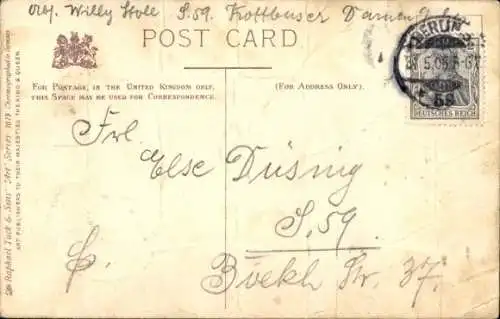 Willy Stoll S.59. Kottbuser
POST CARD
BERLIN
S
5.05.
59
DEUTSCHES REICH
FOR POSTAGE IN THE UNITED KINGDOM ONLY,
THIS SPACE MAY BE USED FOR CORRESPONDENCE.
(FOR ADDRESS ONLY).
Frl.
Else Düsing
S.59
Böckh Str. 37.
Raphael Tuck & Sons' "Art" Series 1073. Chromographed in Germany
ART PUBLISHERS TO THEIR MAJESTIES THE KING & QUEEN